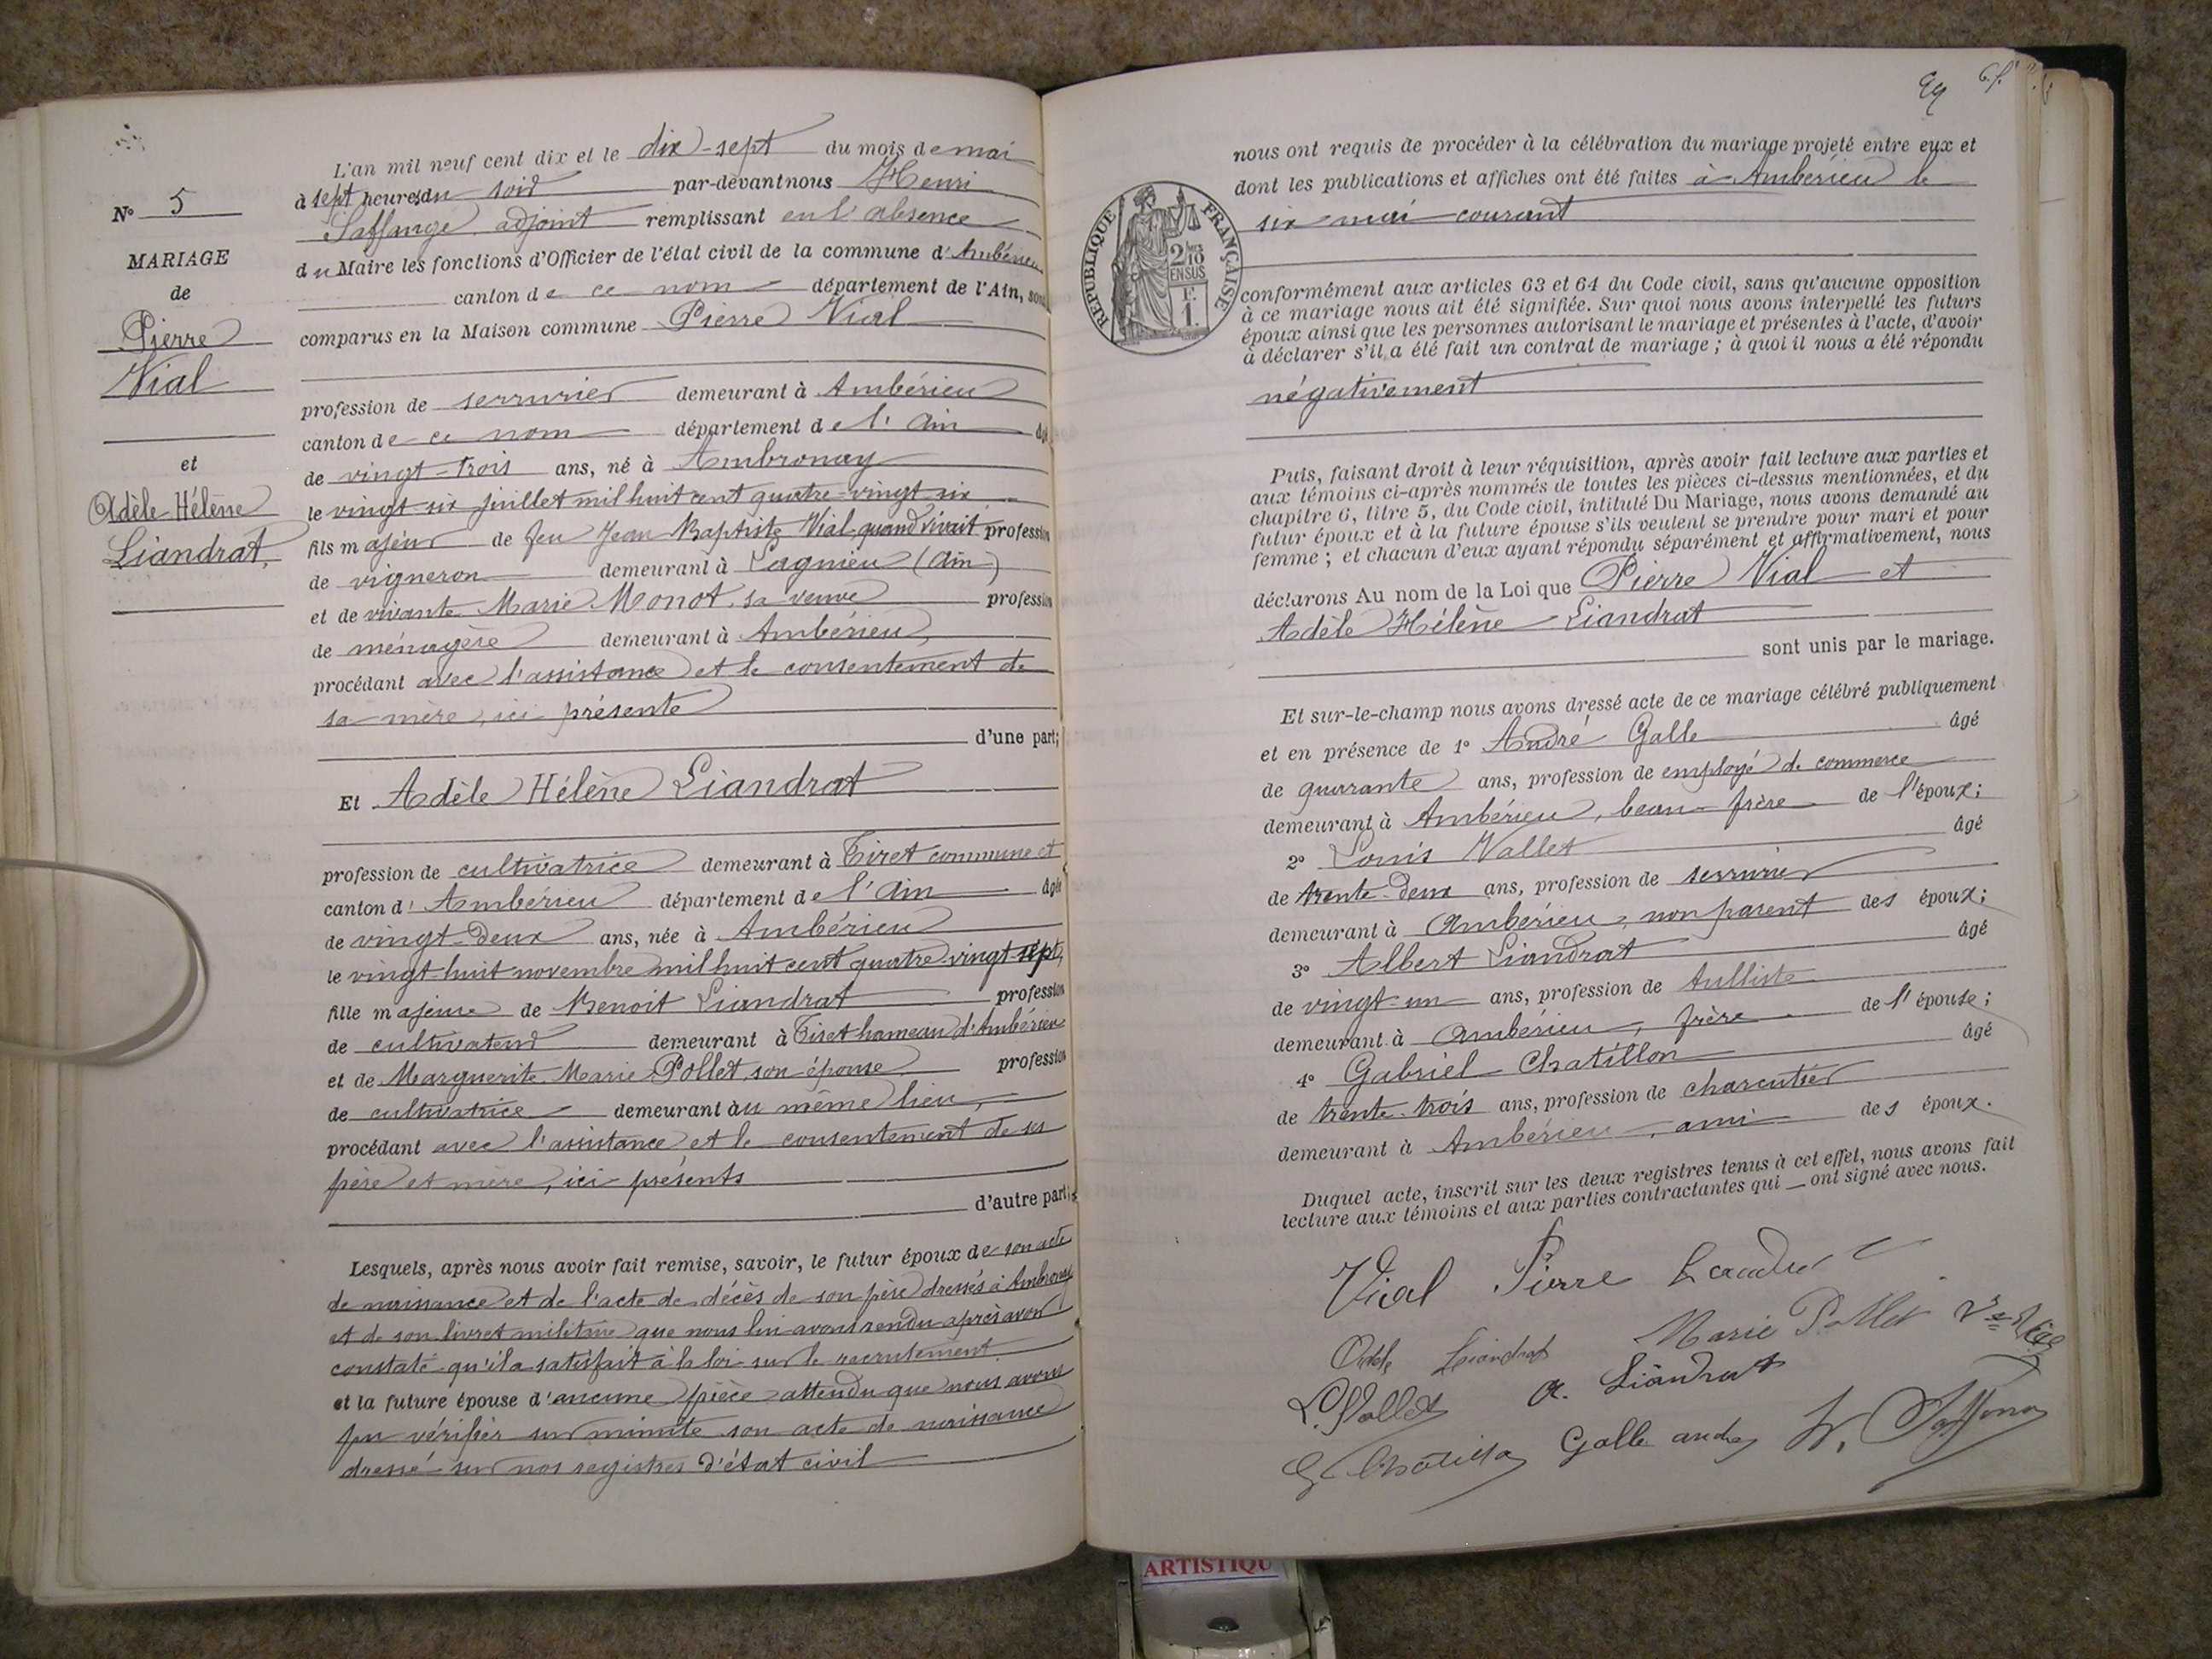 N° 5
MARIAGE
de
Pierre
Vial
et
Adèle Hélène
Liandrat
L'an mil neuf cent dix et le dix-sept du mois de mai
à sept heures du soir par-devant nous Henri
adjoint remplissant en l'absence
du Maire les fonctions d'Officier de l'état civil de la commune d'Ambérieu
canton de ce nom département de l'Ain, sont
comparus en la Maison commune Pierre Vial
profession de serrurier demeurant à Ambérieu
canton de ce nom département de l'Ain âgé
de vingt-trois ans, né à Ambronay
le vingt six juillet mil huit cent quatre-vingt six
fils majeur de feu Jean Baptiste Vial quand vivait profession
de vigneron demeurant à Lagnieu (Ain)
et de vivante Marie Monot, sa veuve profession
de ménagère demeurant à Ambérieu,
procédant avec l'assistance et le consentement de
sa mère, ici présente
d'une part;
Et Adèle Hélène Liandrat
profession de cultivatrice demeurant à Tiret commune et
canton d'Ambérieu département de l'Ain âgée
de vingt-deux ans, née à Ambérieu
le vingt-huit novembre mil huit cent quatre-vingt-sept,
fille majeure de Benoit Liandrat profession
de cultivateur demeurant à Tiret hameau d'Ambérieu
et de Marguerite Marie Pollet, son épouse profession
de cultivatrice demeurant au même lieu,
procédant avec l'assistance et le consentement de ses
père et mère, ici présents
d'autre part;
Lesquels, après nous avoir fait remise, savoir, le futur époux de son acte
de naissance et de l'acte de décès de son père dressés à Ambronay
et de son livret militaire que nous lui avons rendu après avoir
constaté qu'il a satisfait à la loi sur le recrutement
et la future épouse d'aucune pièce attendu que nous avons
pu vérifier sur minute son acte de naissance
dressé sur nos registres d'état civil
RÉPUBLIQUE FRANÇAISE
2/10
EN SUS
1 F.
nous ont requis de procéder à la célébration du mariage projeté entre eux et
dont les publications et affiches ont été faites à Ambérieu le
six mai courant
conformément aux articles 63 et 64 du Code civil, sans qu'aucune opposition
à ce mariage nous ait été signifiée. Sur quoi nous avons interpellé les futurs
époux ainsi que les personnes autorisant le mariage et présentes à l'acte, d'avoir
à déclarer s'il a été fait un contrat de mariage ; à quoi il nous a été répondu
négativement
Puis, faisant droit à leur réquisition, après avoir fait lecture aux parties et
aux témoins ci-après nommés de toutes les pièces ci-dessus mentionnées, et du
chapitre 6, titre 5, du Code civil, intitulé Du Mariage, nous avons demandé au
futur époux et à la future épouse s'ils veulent se prendre pour mari et pour
femme ; et chacun d'eux ayant répondu séparément et affirmativement, nous
déclarons Au nom de la Loi que Pierre Vial et
Adèle Hélène Liandrat
sont unis par le mariage.
Et sur-le-champ nous avons dressé acte de ce mariage célébré publiquement
et en présence de 1° André Galle âgé
de quarante ans, profession de employé de commerce
demeurant à Ambérieu, beau-frère de l'époux;
2° Louis Vallet âgé
de trente-deux ans, profession de serrurier
demeurant à Ambérieu, non parent des époux;
3° Albert Liandrat âgé
de vingt-un ans, profession de tulliste
demeurant à Ambérieu, frère de l'épouse;
4° Gabriel Chatillon âgé
de trente-trois ans, profession de charcutier
demeurant à Ambérieu, ami des époux.
Duquel acte, inscrit sur les deux registres tenus à cet effet, nous avons fait
lecture aux témoins et aux parties contractantes qui ont signé avec nous.
Vial Pierre
Adèle Liandrat Marie Pollet Vve Vial
L. Vallet A. Liandrat
G Chatillon Galle andré H.
ARTISTIQU